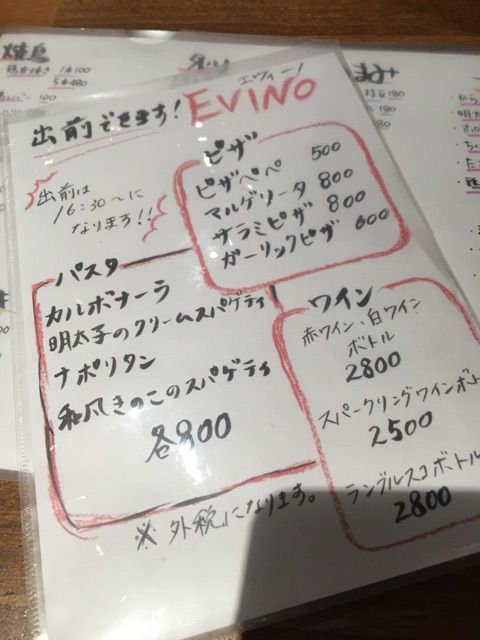 焼鳥
1本100
5本480
100
180
180
から
明太
エヴィーノ
出前できます! EVINO
出前は
16:30〜に
なります!!
ピザ
ピザペペ 500
マルゲリータ 800
サラミピザ 800
ガーリックピザ 600
パスタ
カルボナーラ
明太子のクリームスパゲティ
ナポリタン
和風きのこのスパゲティ
各900
ワイン
赤ワイン、白ワイン
ボトル
2800
スパークリングワインボト
2500
ランブルスコボトル
2800
※外税になります。